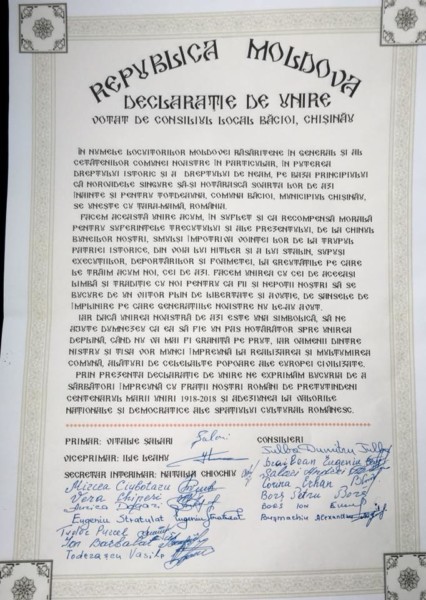 REPUBLICA MOLDOVA
DECLARAȚIE DE UNIRE
VOTAT DE CONSILIUL LOCAL BĂCIOI, CHIȘINĂU
ÎN NUMELE LOCUITORILOR MOLDOVEI RĂSĂRITENE ÎN GENERAL ȘI AL
CETĂȚENILOR COMUNEI NOASTRE ÎN PARTICULAR, ÎN PUTEREA
DREPTULUI ISTORIC ȘI A DREPTULUI DE NEAM, PE BAZA PRINCIPIULUI
CĂ NOROADELE SINGURE SĂ-ȘI HOTĂRASCĂ SOARTA LOR DE AZI
ÎNAINTE ȘI PENTRU TOTDEAUNA, COMUNA BĂCIOI, MUNICIPUL CHIȘINĂU,
SE UNEȘTE CU ȚARA-MAMĂ, ROMÂNIA.
FACEM ACEASTĂ UNIRE ACUM, ÎN SUFLET ȘI CA RECOMPENSĂ MORALĂ
PENTRU SUFERINȚELE TRECUTULUI ȘI ALE PREZENTULUI, DE LA CHINUL
BUNEILOR NOȘTRI, SMULȘI ÎMPOTRIVA VOINȚEI LOR DE LA TRUPUL
PATRIEI ISTORICE, DIN VOIA LUI HITLER ȘI A LUI STALIN, SUPUȘI
EXECUȚIILOR, DEPORTĂRILOR ȘI FOAMETEI, LA GREUTĂȚILE PE CARE
LE TRĂIM ACUM NOI, CEI DE AZI. FACEM UNIREA CU CEI DE ACEEAȘI
LIMBĂ ȘI TRADIȚIE CU NOI PENTRU CA FII ȘI NEPOȚII NOȘTRI SĂ SE
BUCURE DE UN VIITOR PLIN DE LIBERTATE ȘI AVUȚIE, DE ȘANSELE DE
ÎMPLINIRE PE CARE GENERAȚIILE NOASTRE NU LE-AU AVUT.
IAR DACĂ UNIREA NOASTRĂ DE AZI ESTE UNA SIMBOLICĂ, SĂ NE
AJUTE DUMNEZEU CA EA SĂ FIE UN PAS HOTĂRÂTOR SPRE UNIREA
DEPLINĂ, CÂND NU VA MAI FI GRANIȚĂ PE PRUT, IAR OAMENII DINTRE
NISTRU ȘI TISA VOR MUNCI ÎMPREUNĂ LA REALIZAREA ȘI MULȚUMIREA
COMUNĂ, ALĂTURI DE CELELALTE POPOARE ALE EUROPEI CIVILIZATE.
PRIN PREZENTA DECLARAȚIE DE UNIRE NE EXPRIMĂM BUCURIA DE A
SĂRBĂTORI ÎMPREUNĂ CU FRAȚII NOȘTRI ROMÂNI DE PRETUTINDENI
CENTENARUL MARII UNIRI 1918-2018 ȘI ADEZIUNEA LA VALORILE
NAȚIONALE ȘI DEMOCRATICE ALE SPAȚIULUI CULTURAL ROMÂNESC.
PRIMAR: VITALIE SALARI
CONSILIERI
VICEPRIMAR: ILIE LEAHU
Dumitru
Eugenia
SECRETAR INTERIMAR: NATALIA CHIOCHIU
Salari Andrei
Mircea Ciubotaru
Corina Urhan
Vera Chiperi
Borș
Eugeniu Stratulat
Borș Ion
Teodor Purcel
Ion Barbalat
Vasile